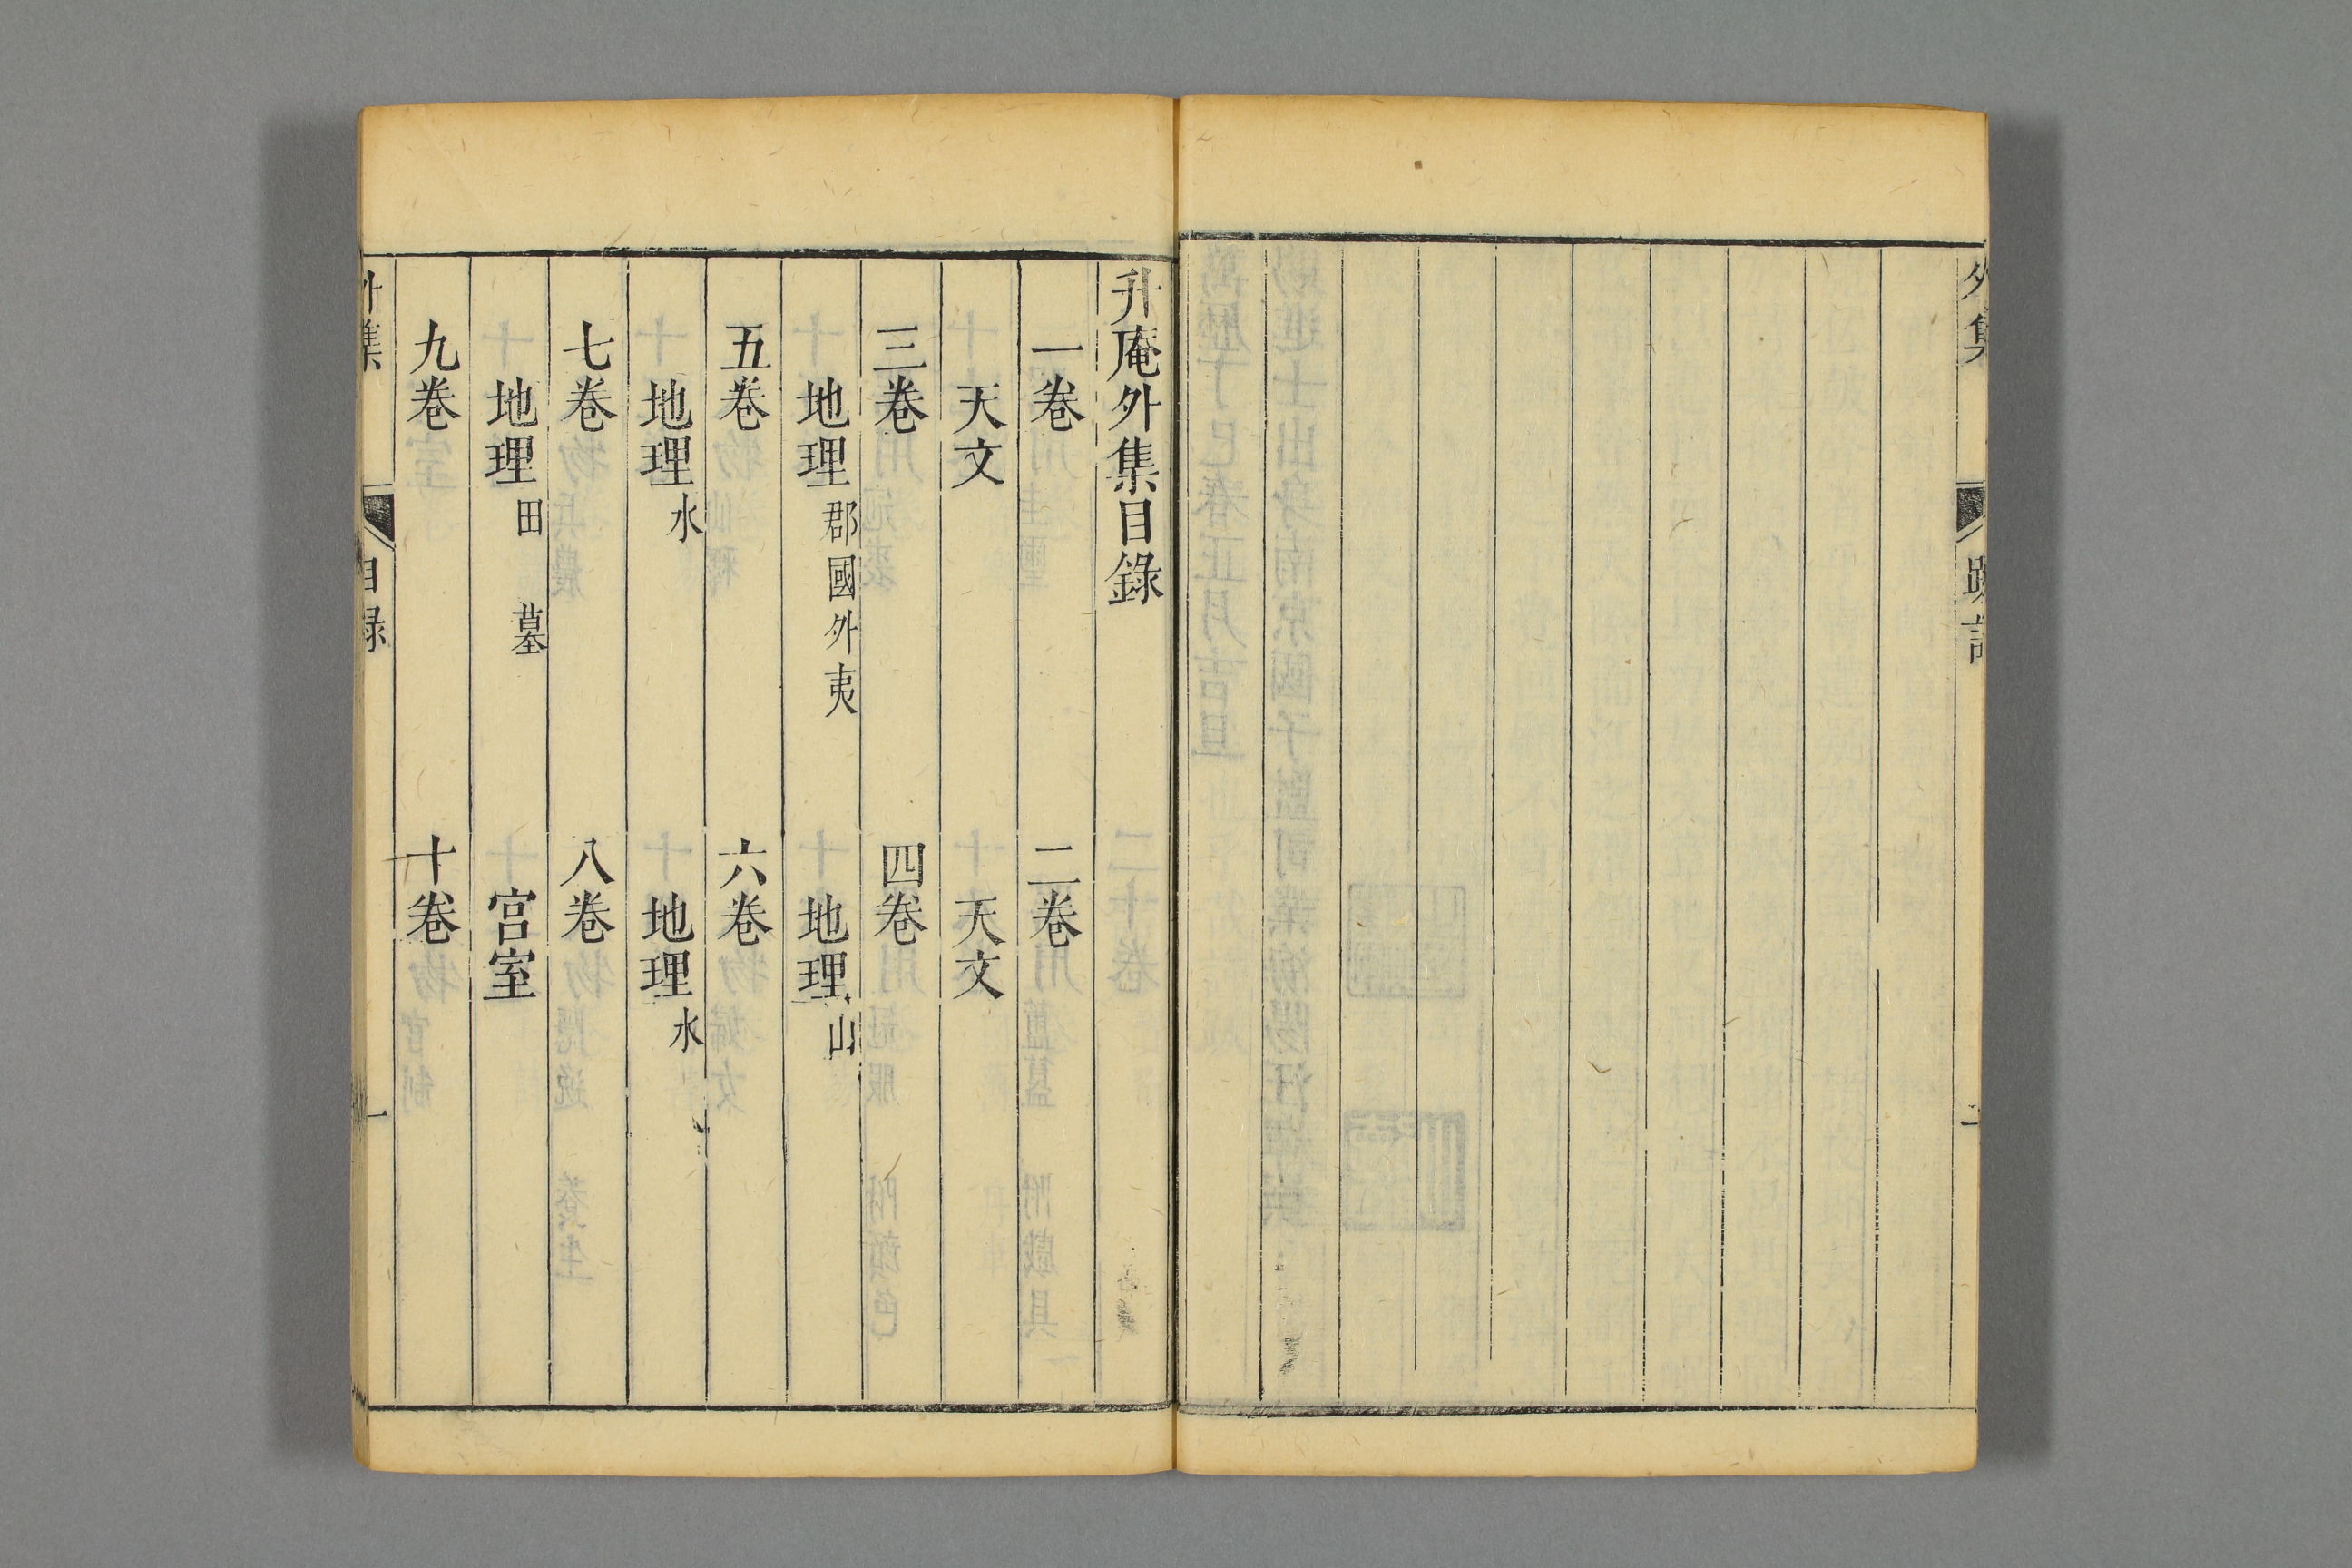 外集
二
升庵外集目錄
一卷 二卷
天文 天文
三卷 四卷
地理 郡國外夷 地理 山
五卷 六卷
地理 水 地理 水
七卷 八卷
地理 田 墓 宮室
九卷 十卷
外集 目録 一